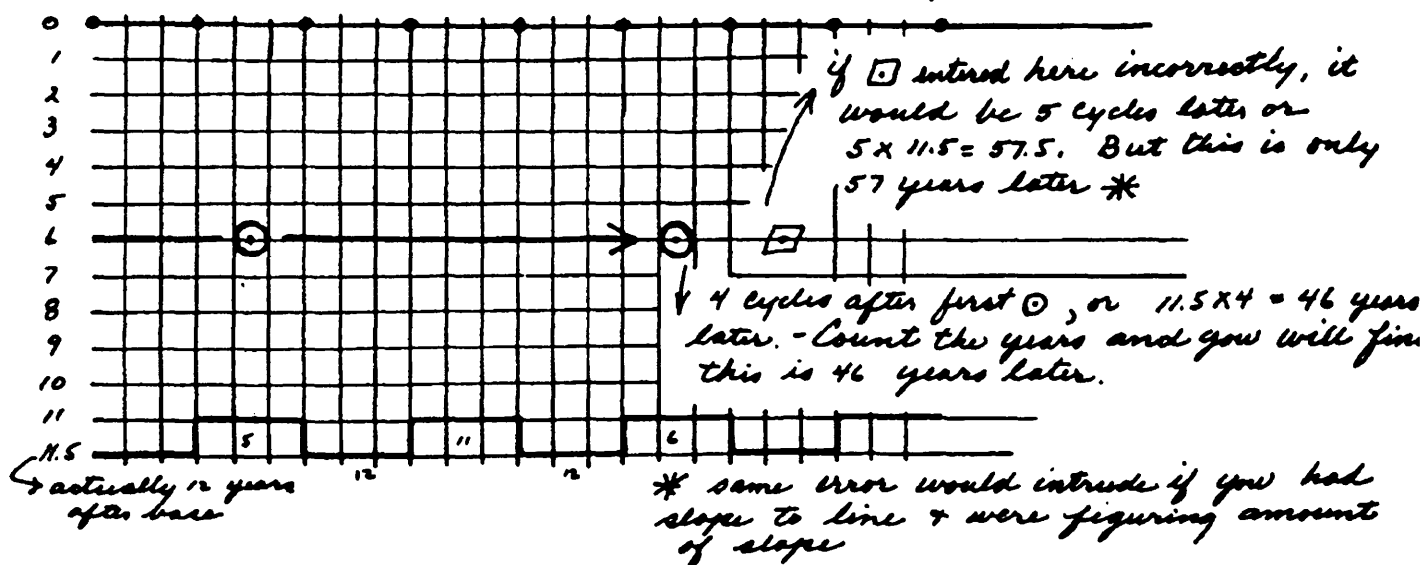 0
1
2
3
4
5
6
7
8
9
10
11
11.5
if ⊡ entered here incorrectly, it
would be 5 cycles later or
5 x 11.5 = 57.5. But this is only
57 years later *
4 cycles after first ⊙, or 11.5 x 4 = 46 years
later. - Count the years and you will fin
this is 46 years later.
5
12
11
12
6
actually 12 years
after base
* same error would intrude if you had
slope to line & were figuring amount
of slope